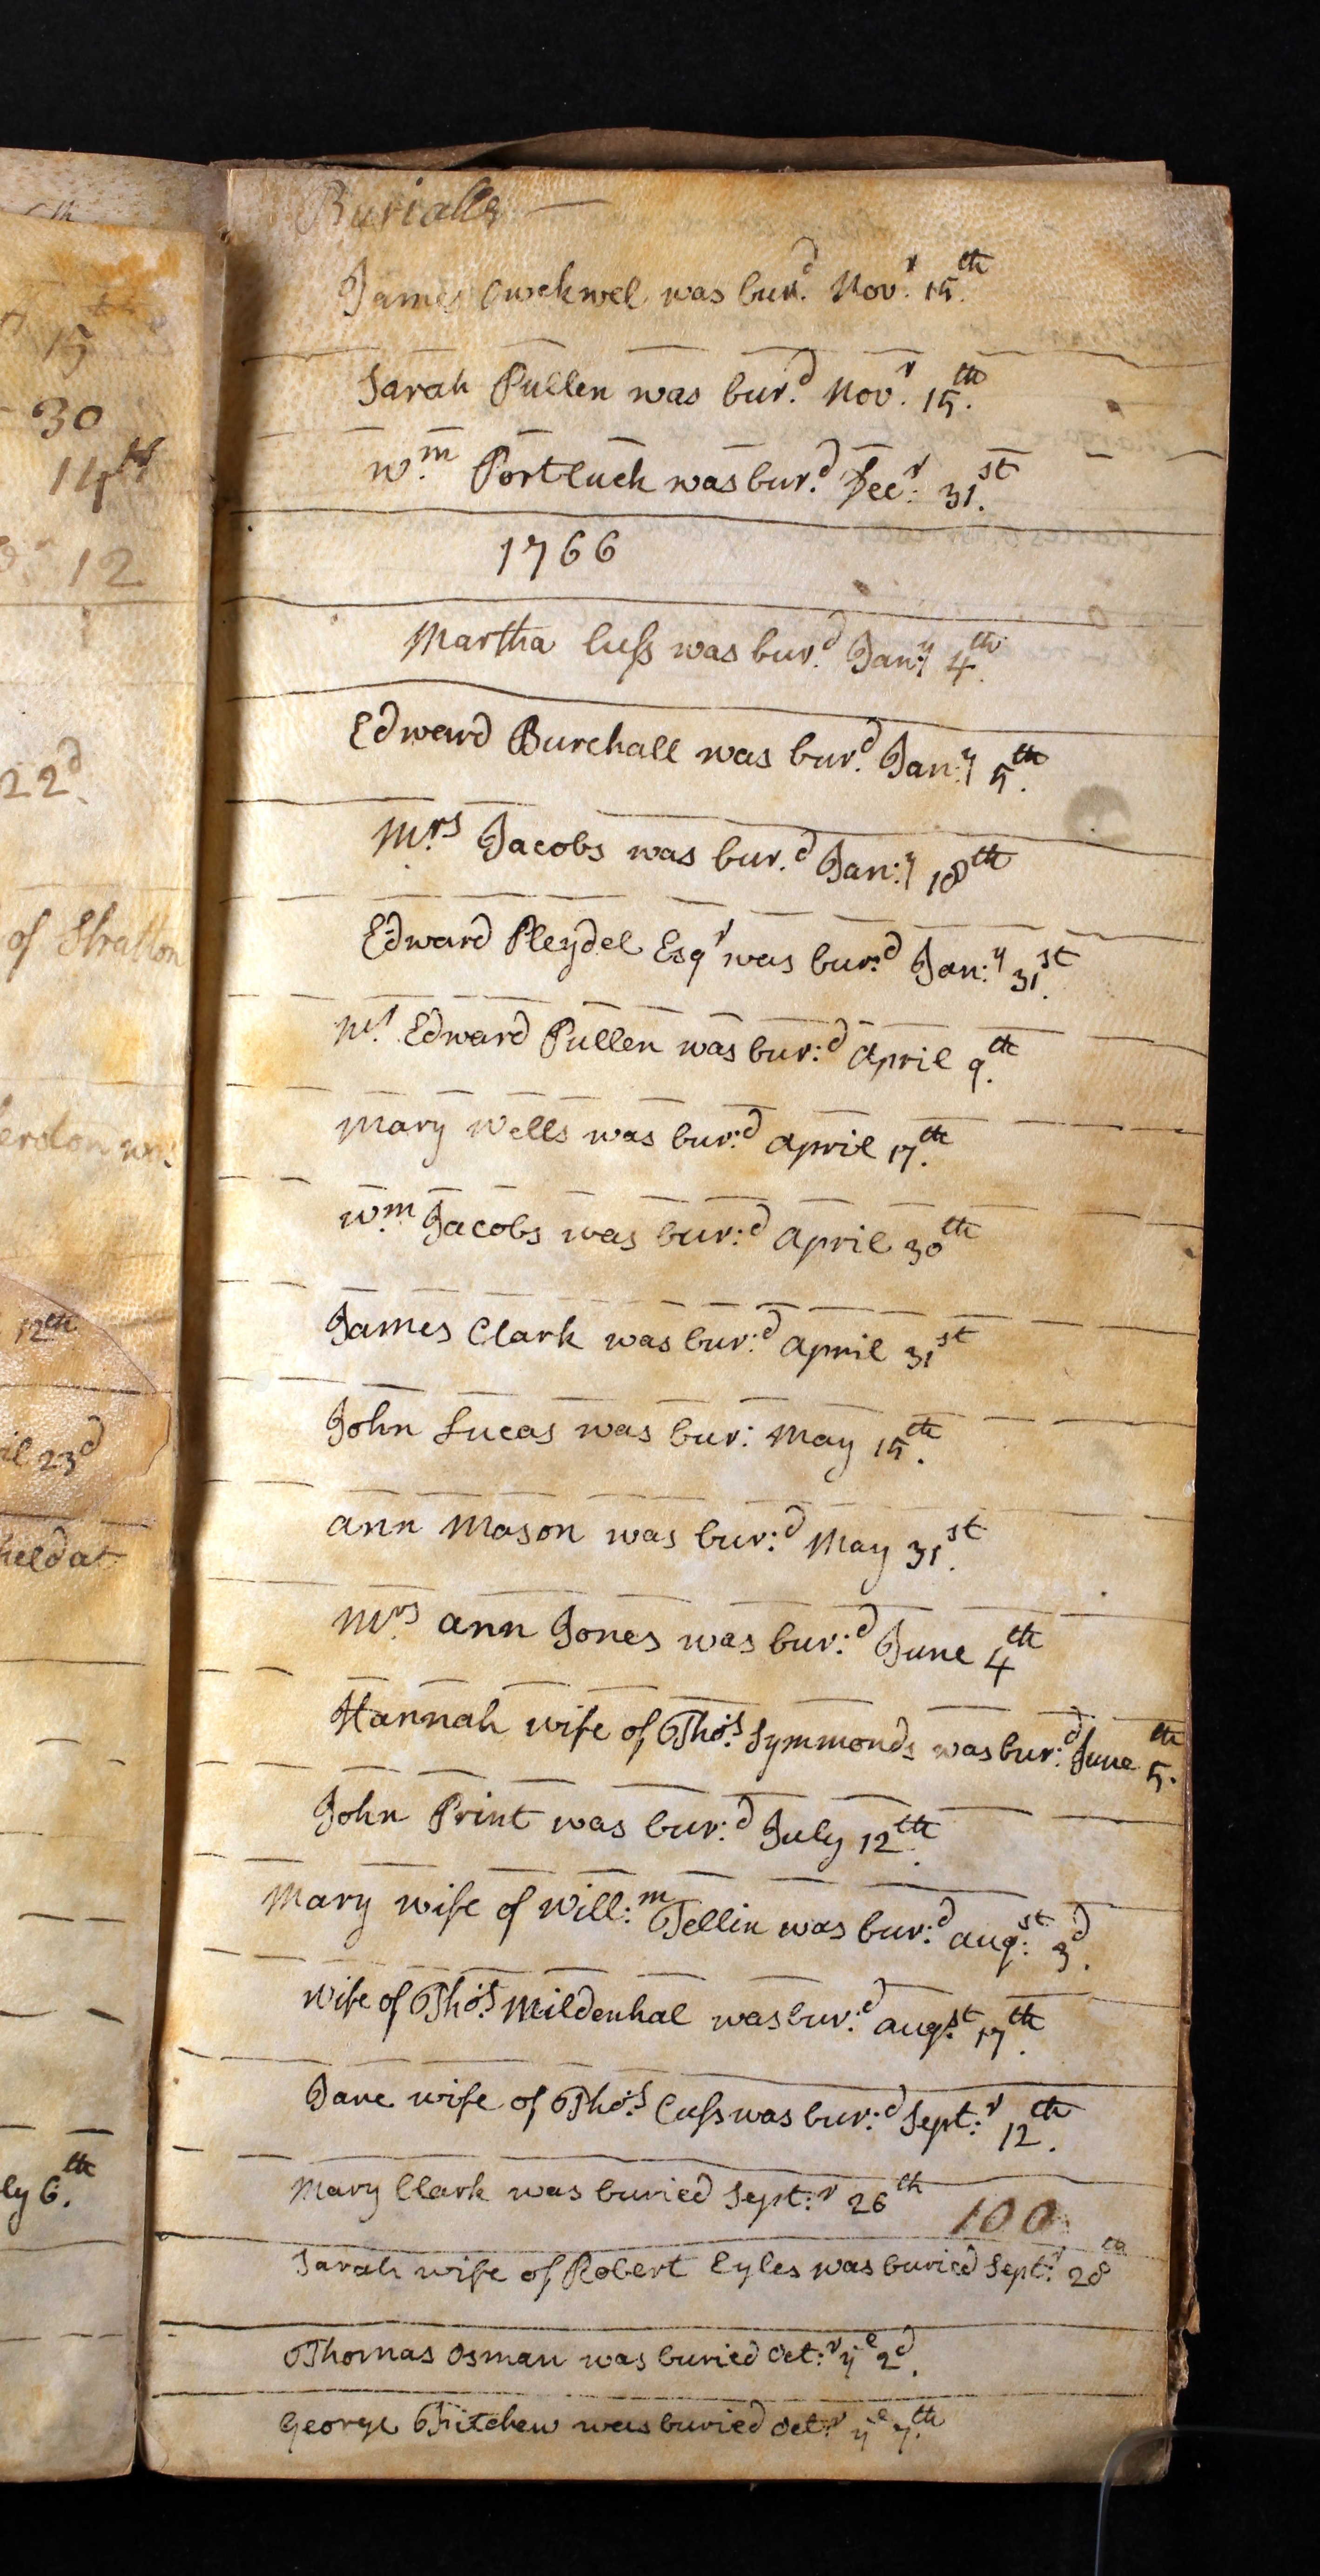 15
30
14th
12
22d
of Stratton
12th
23d
held at
ly 6.th
Burialls
James was bur.d Nov.r 15.th
Sarah Pullen was bur.d Nov.r 15.th
Wm. Portluck was bur.d Decr: 31.st
1766
Martha Cuſs was bur.d Jan:y 4th.
Edward Burchall was bur.d Jan:y 5.th
Mrs. Jacobs was bur.d Jan:y 18th
Edward Pleydel Esqr was bur:d Jan:y 31.st
Mr. Edward Pullen was bur:d April 9.th
Mary Wells was bur:d April 17.th
Wm. Jacobs was bur:d April 30th
James Clark was bur:d April 31st
John Lucas was bur: May 15.th
Ann Mason was bur:d May 31.st
Mrs. Ann Jones was bur:d June 4th
Hannah wife of Thos. Symmonds was bur:d June 5.th
John Print was bur:d July 12.th
Mary wife of Will:m Tellin was bur:d Aug:st 3.d
wife of Thos. Mildenhal was bur:d Aug:st 17.th
Jane wife of Thos. Cuſs was bur:d Sept:r 12.th
Mary Clark was buried Sept:r 26th
100
Sarah wife of Robert Eyles was buried Sept:r 28th
Thomas Osman was buried Oct:r ye 2d.
George Tritchew was buried Oct:r ye 7.th